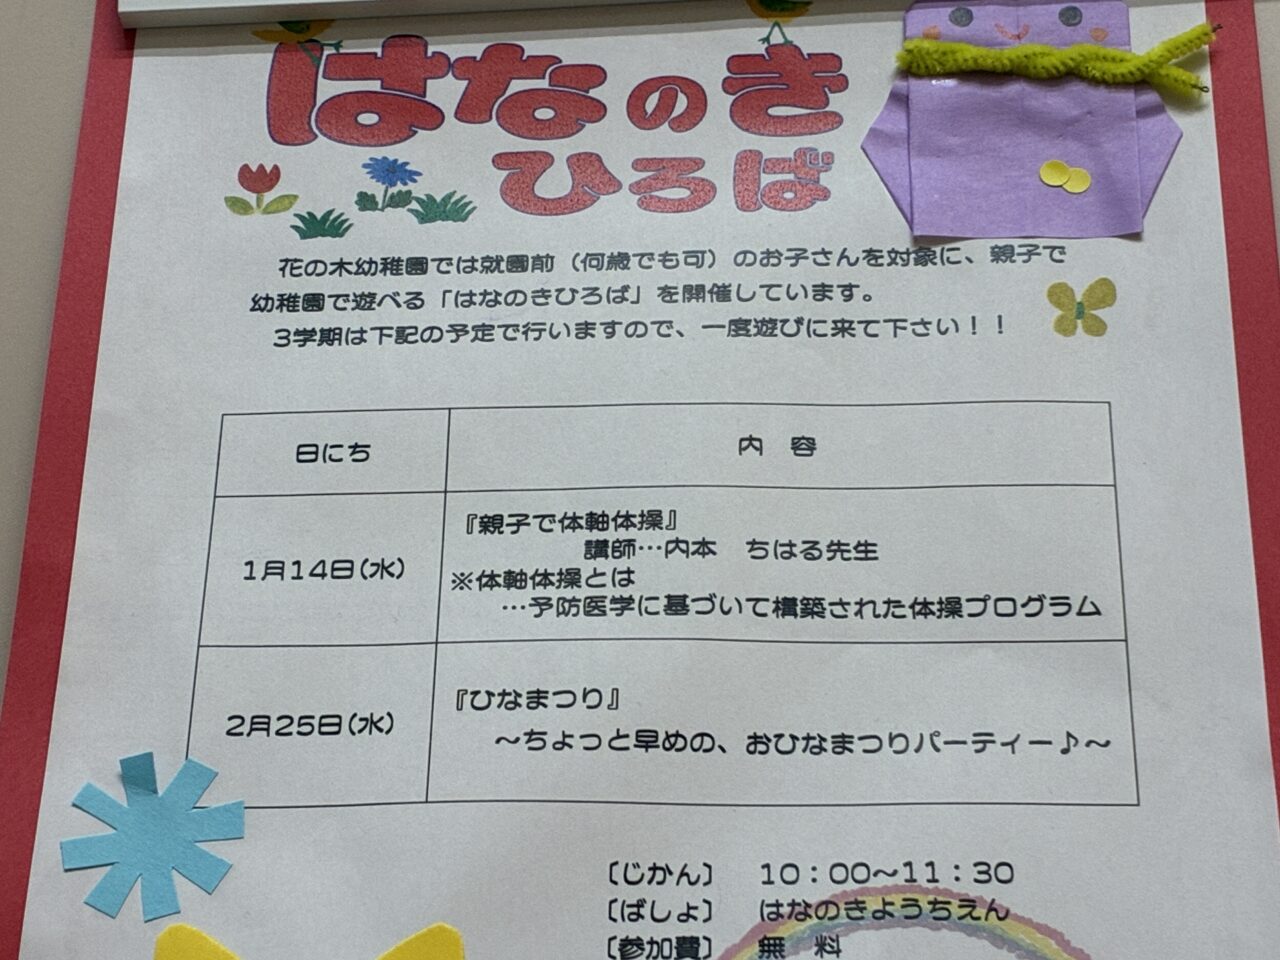 はなのき
ひろば
花の木幼稚園では就園前（何歳でも可）のお子さんを対象に、親子で
幼稚園で遊べる「はなのきひろば」を開催しています。
3学期は下記の予定で行いますので、一度遊びに来て下さい！！
日にち
内　容
1月14日(水)
『親子で体軸体操』
講師…内本　ちはる先生
※体軸体操とは
…予防医学に基づいて構築された体操プログラム
2月25日(水)
『ひなまつり』
～ちょっと早めの、おひなまつりパーティー♪～
〔じかん〕　10：00～11：30
〔ばしょ〕　はなのきようちえん
〔参加費〕　無　料